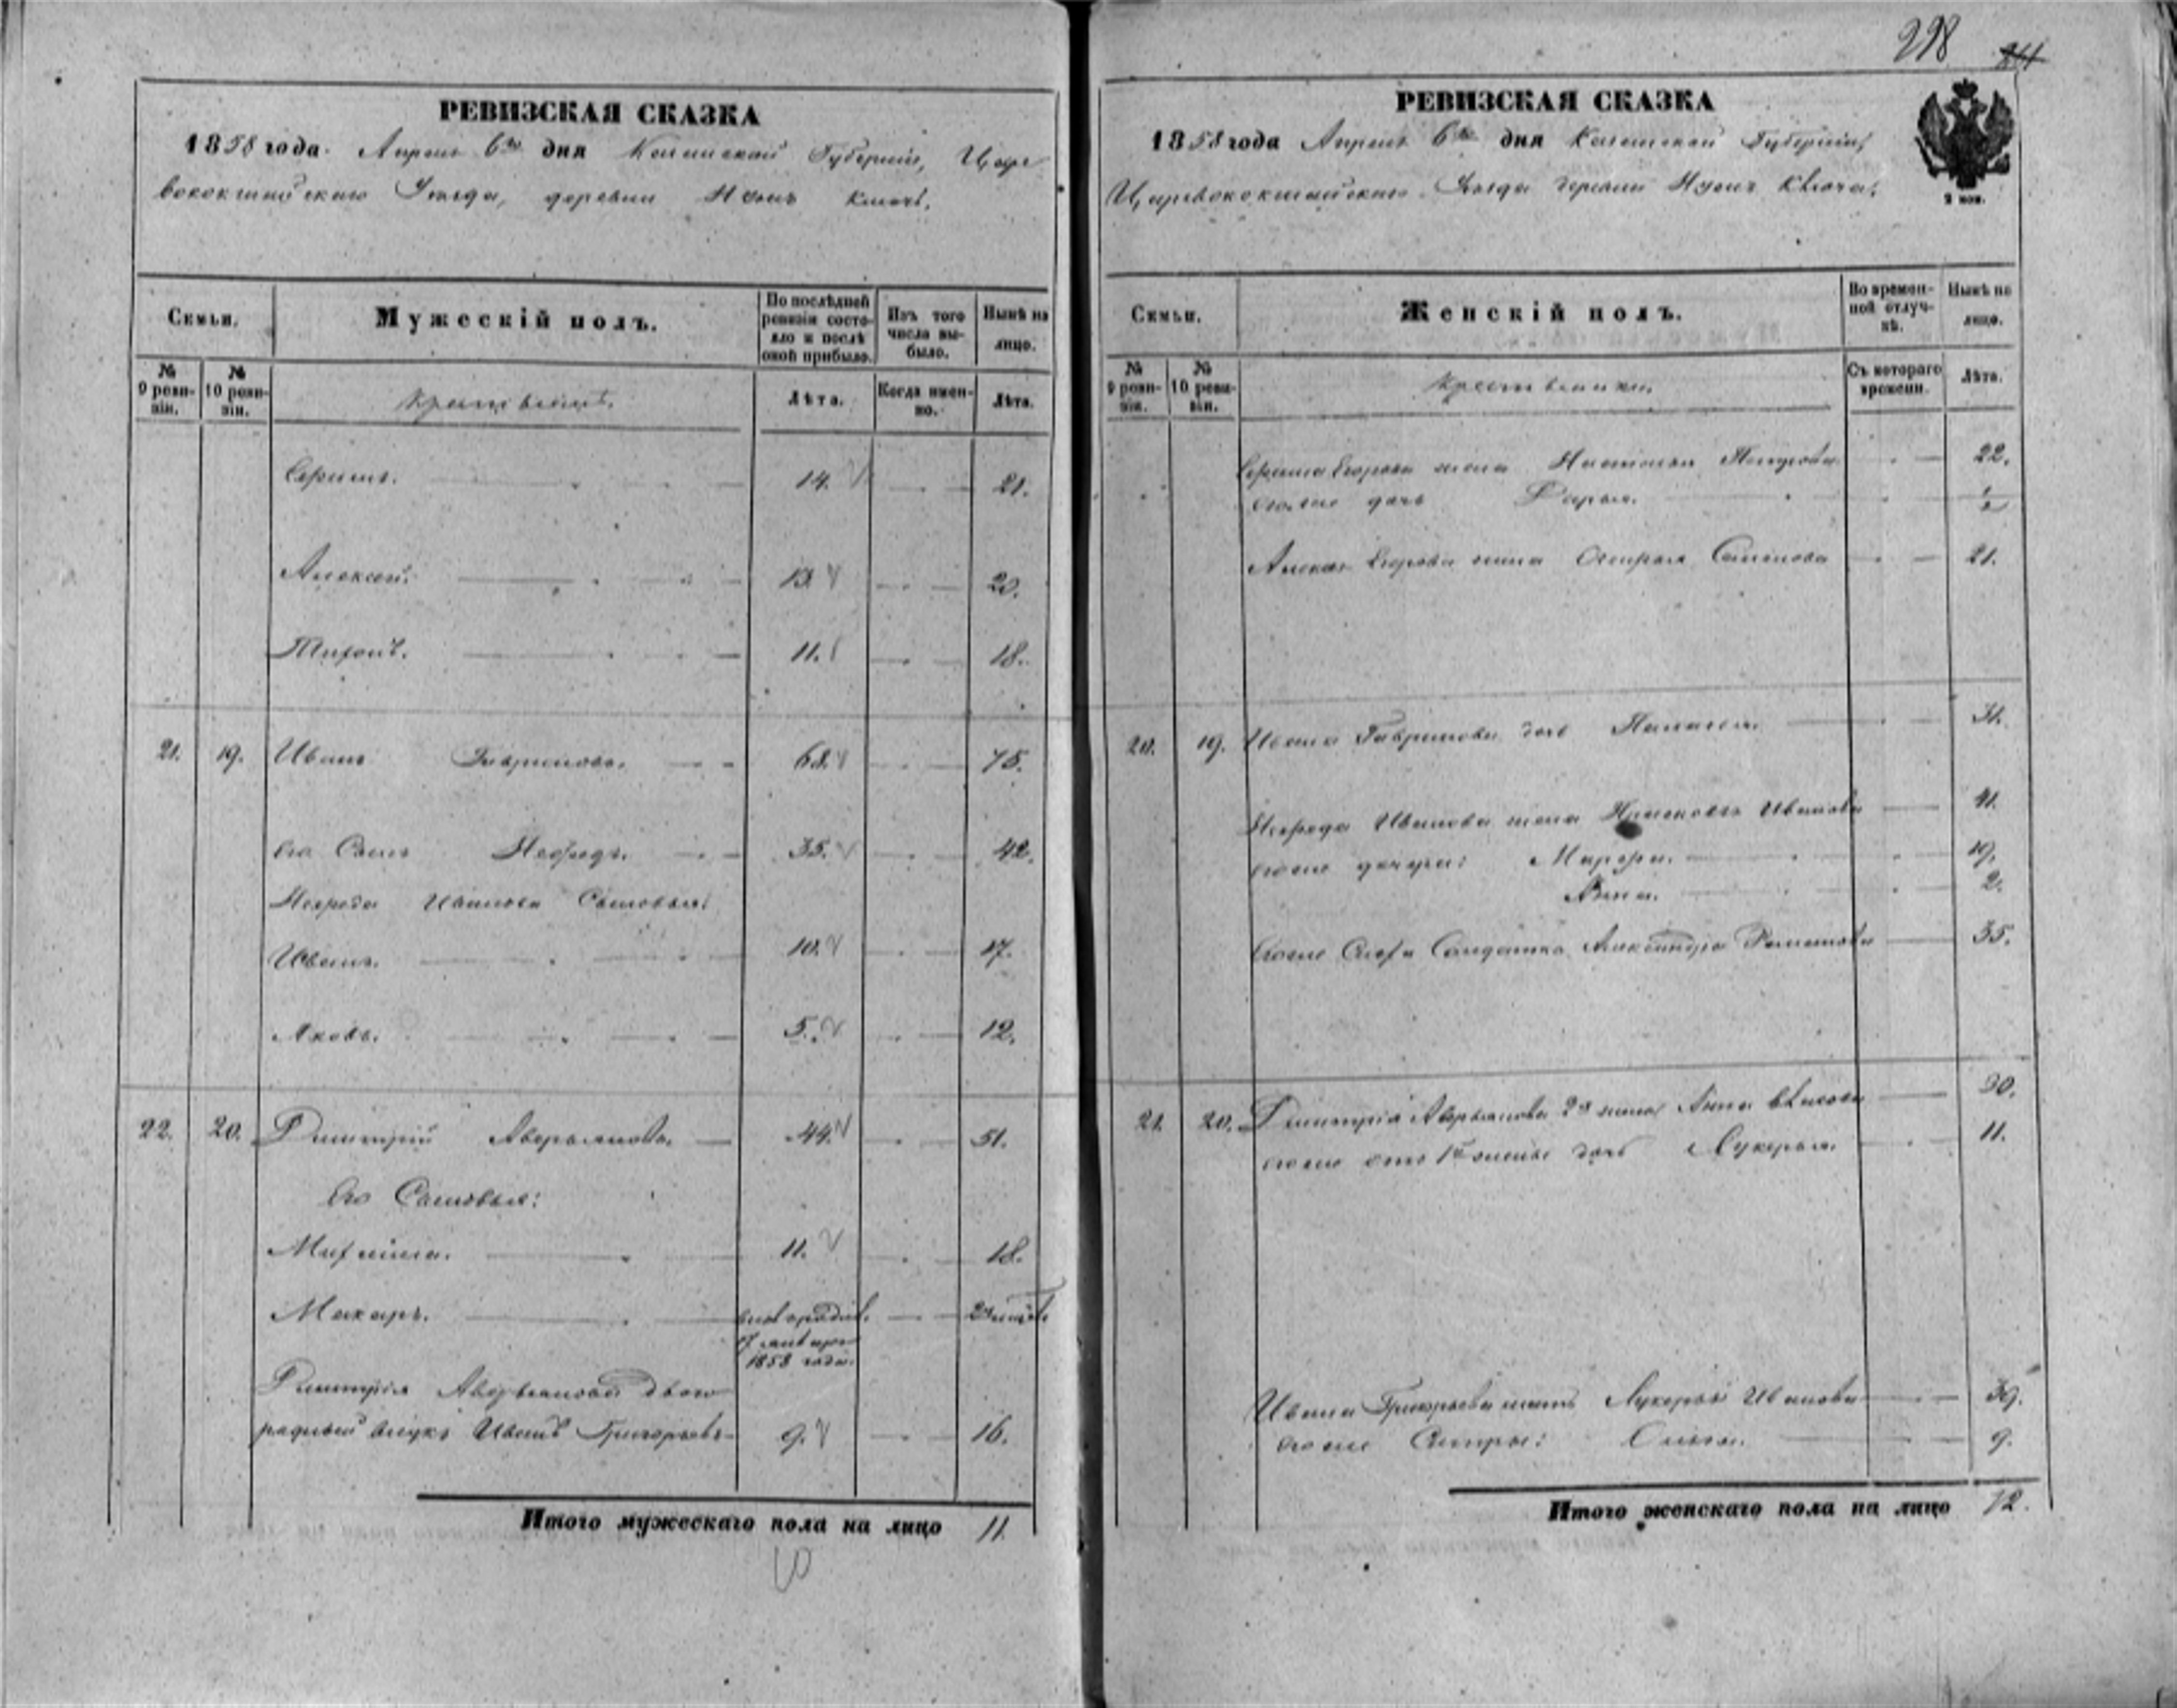 298
РЕВИЗСКАЯ СКАЗКА
1858 года. Апреля 6го дня Казанской Губернии, Царе
вококшайскаго Уезда, деревни Ключъ.
Семьи.
Мужескій полъ.
По последней
ревизіи состо-
яло и послѣ
оной прибыло.
Изъ того
числа вы-
было.
Нынѣ на
лицо.
№
9 реви-
зіи.
№
10 реви-
зіи.
Крестьяне.
Лѣта.
Когда имен-
но.
Лѣта.
14. 21.
Алексей. 13. 20.
11. 18.
21. 19. Иванъ Гавриловъ. 68. 75.
Его Сынъ Нефедъ. 35. 42.
Нефеда Иванова Сыновья:
Иванъ. 10. 17.
Яковъ. 5. 12.
22. 20. Димитрій Аверьяновъ. 44. 51.
Его Сыновья:
Михайла. 11. 18.
Макаръ.
1858 года.
Димитрія Аверьянова двою
родный внукъ Иванъ Григорьевъ 9. 16.
Итого мужескаго пола на лицо 11.
10
РЕВИЗСКАЯ СКАЗКА
1858 года Апреля 6го дня Казанской Губерніи,
Царевококшайскаго Уезда деревни Ключа.
2 коп.
Семьи.
Женскій полъ.
Во времен-
ной отлуч-
кѣ.
Нынѣ на
лицо.
№
9 реви-
зіи.
№
10 реви-
зіи.
Крестьянки.
Съ котораго
времени.
Лѣта.
Егорова жена Настасья 22.
Его же дочь Дарья.
Егорова жена Семенова 21.
20. 19. Ивана Гаврилова дочь 31.
Нефеда Иванова жена Иванова 41.
Его же дочери: Марфа. 19.
Анна. 2.
Его же Солдатка Александра 35.
21. 20. Димитрія Аверьянова 2я жена Анна 30.
Его же отъ 1й жены дочь Лукерья. 11.
Ивана Григорьева мать Лукерья Иванова 39.
Его же Сестры: 9.
Итого женскаго пола на лицо 12.